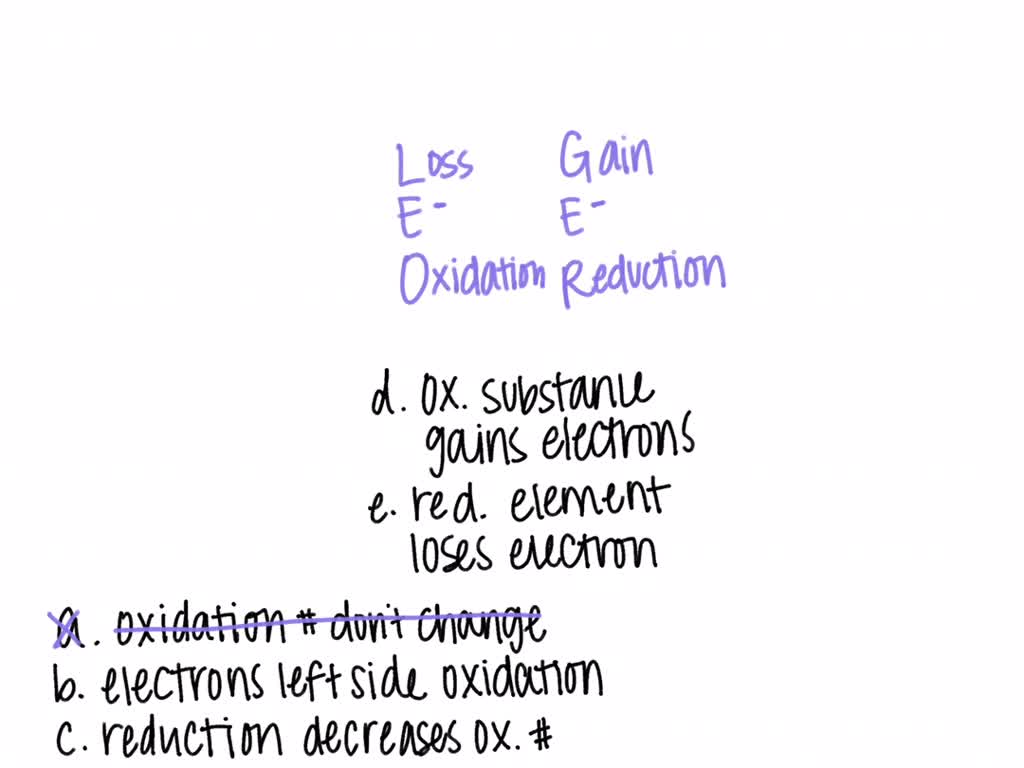 Loss Gain
E⁻ E⁻
Oxidation Reduction
d. ox. substance
gains electrons
e. red. element
loses electron
a. oxidation # don't change
b. electrons left side oxidation
c. reduction decreases ox. #